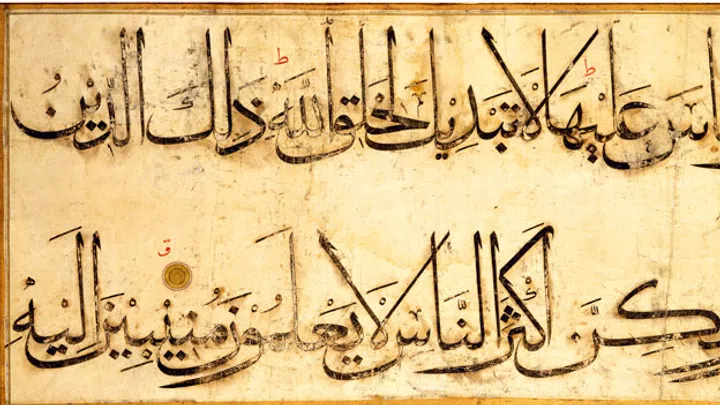 اسَ عَلَيْهَا ط لَا تَبْدِيلَ لِخَلْقِ اللَّهِ ط ذَلِكَ الدِّينُ
كِنَّ أَكْثَرَ النَّاسِ لَا يَعْلَمُونَ ق مُنِيبِينَ إِلَيْهِ